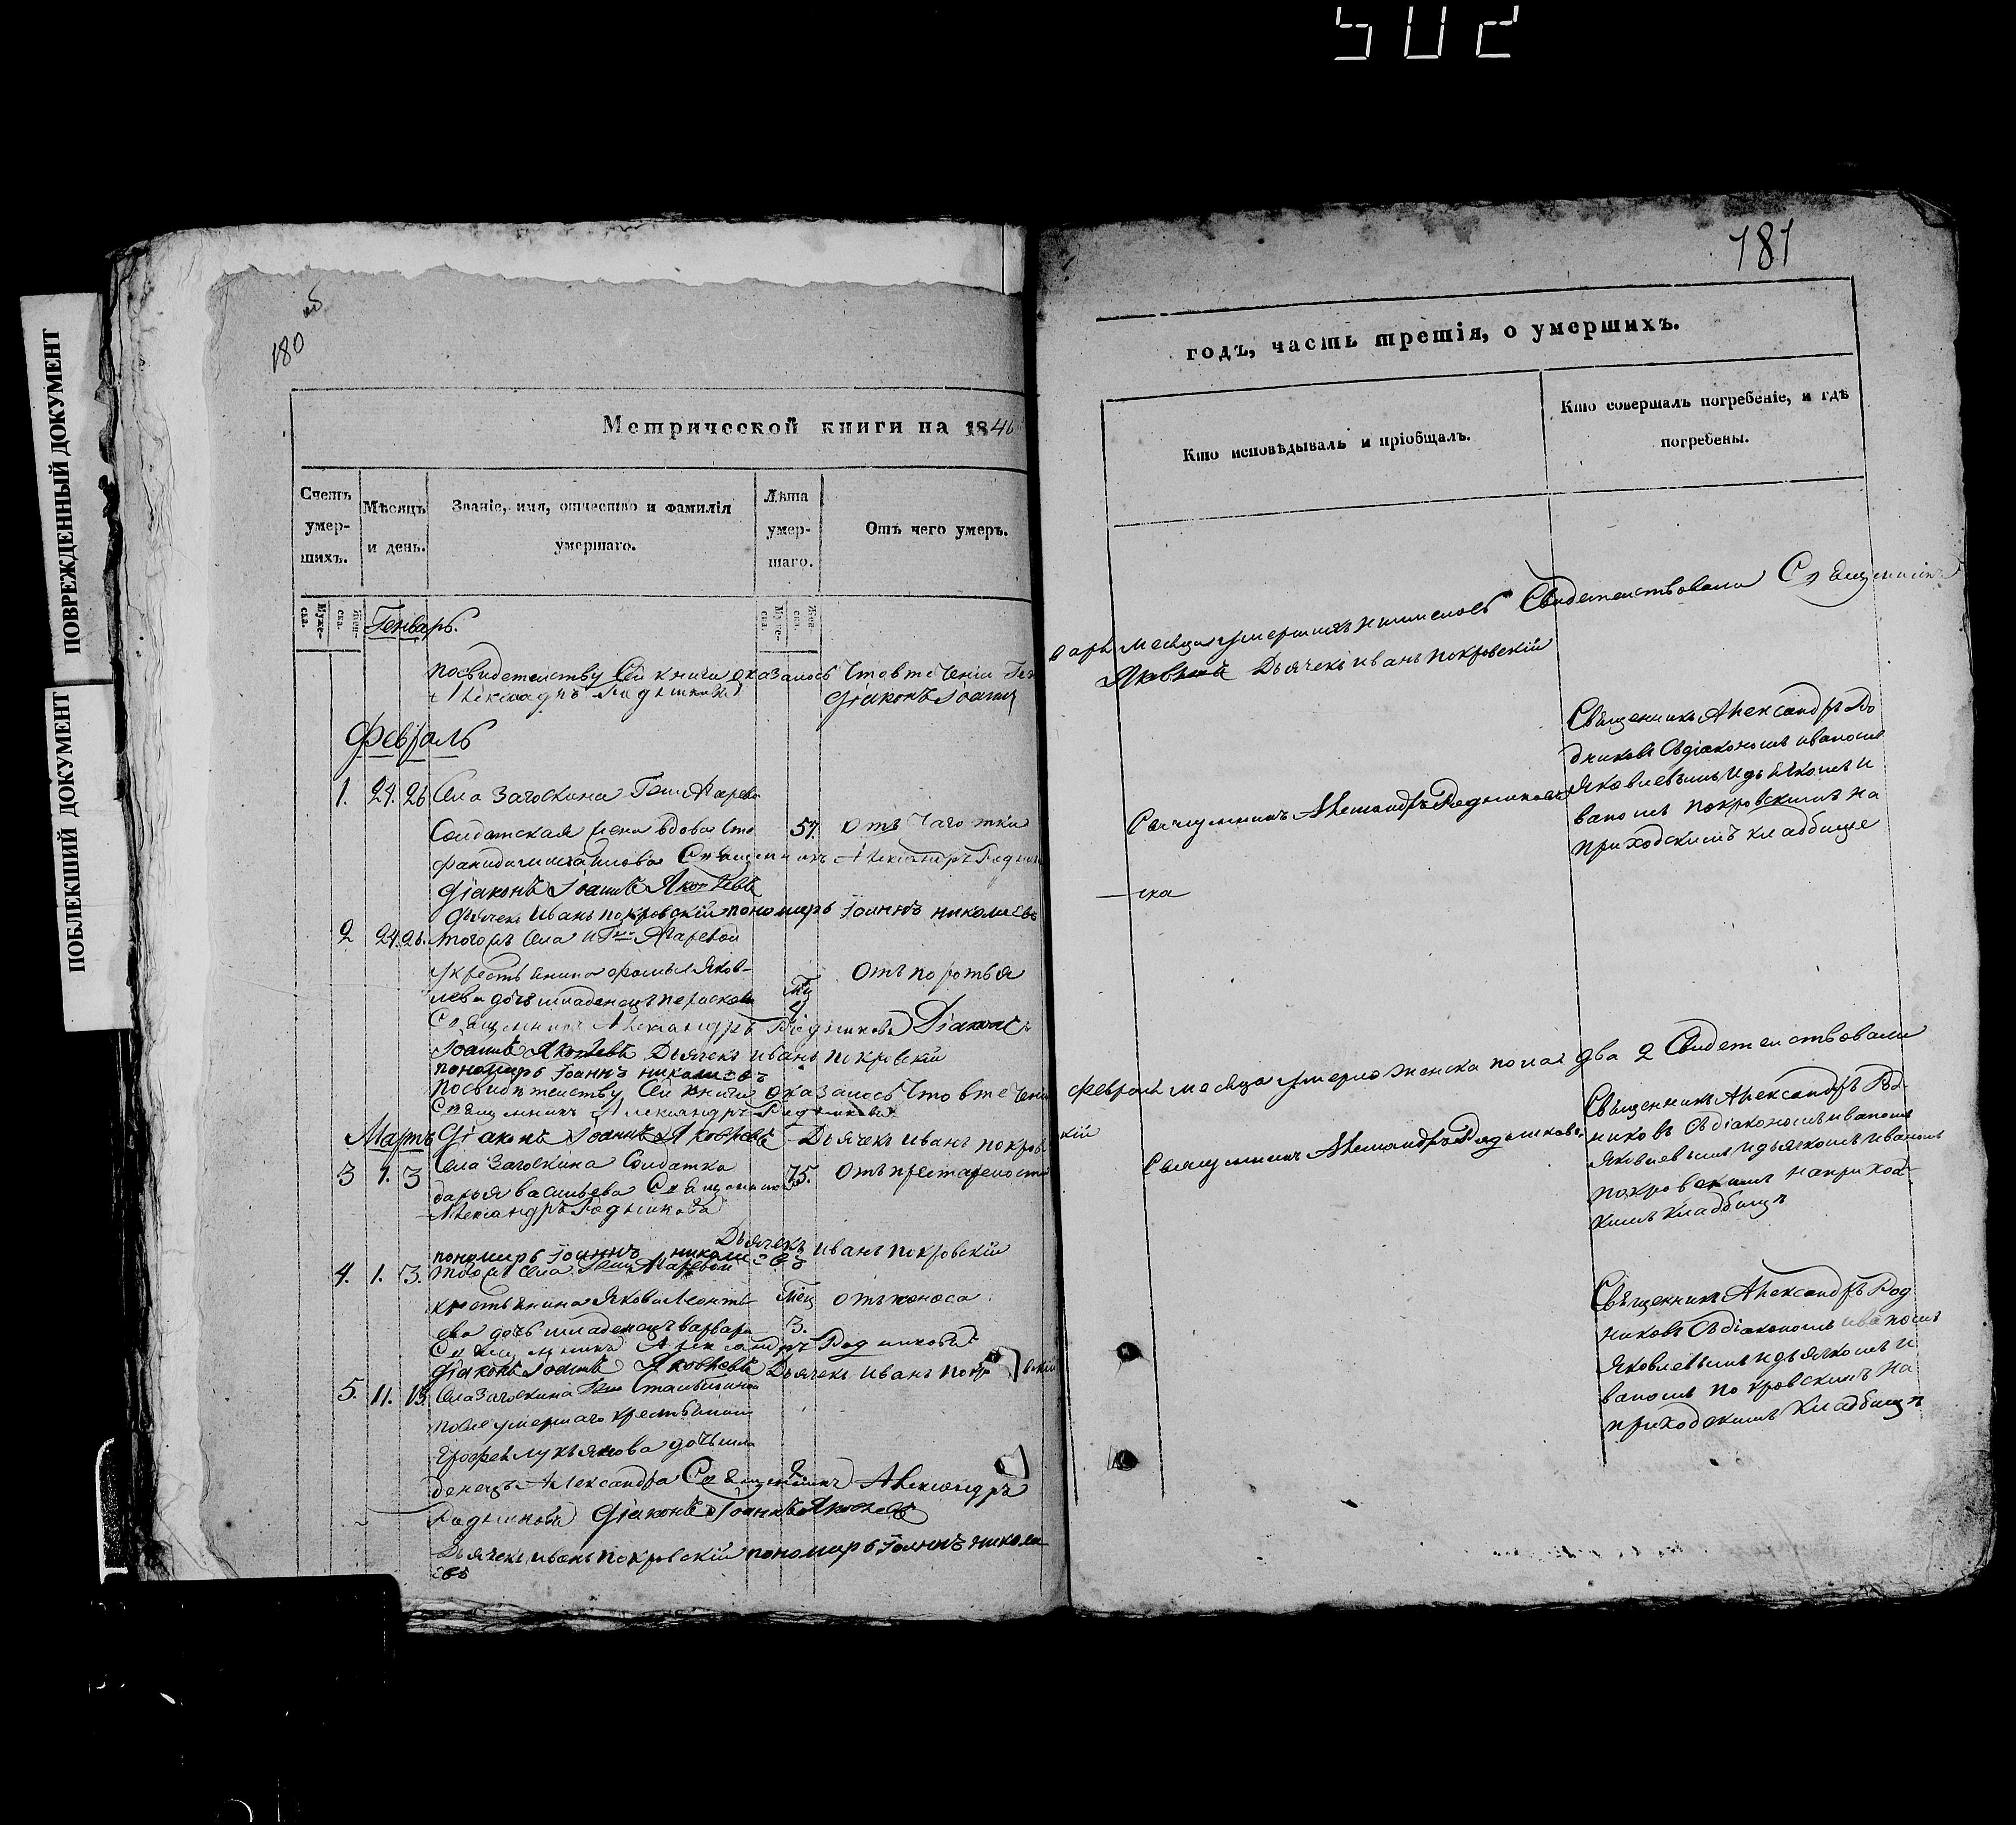 502
ПОВРЕЖДЕННЫЙ ДОКУМЕНТ
ПОБЛЕКШИЙ ДОКУМЕНТ
180 об
Метрической книги на 1846
Счетъ умер-шихъ.
Мѣсяцъ и день.
Званіе, имя, отчество и фамилія умершаго.
Лѣта умер-шаго.
Отъ чего умеръ.
Муже-ска.
Жен-ска.
Муже-ска.
Жен-ска.
Генварь.
посвидетельству Сей книги оказалось Что в течении Ген
Александръ Родниковъ Діаконъ Іоаннъ
Февраль
1. 24. 26 Села Загоскина Гжи Агаревой
Солдатская жена вдова
57. Отъ Чахотки
Михайлова Священникъ Александръ Родников
Діаконъ Іоаннъ Яковлевъ
Дьячекъ Иванъ покровскій пономарь Іоаннъ николаевъ
2 24. 26. тогожъ села Гжи Агаревой
крестьянина Яков-
лева дочь младенецъ
Священникъ Александръ Родниковъ Діаконъ
Іоаннъ Яковлевъ Дьячекъ иванъ покровскій
пономарь Іоаннъ николаевъ
посвидетельству Сей книги оказалось Что в течении
Священникъ Александръ Родниковъ
Мартъ Діаконъ Іоаннъ Яковлевъ Дьячекъ иванъ покров-
3 1. 3 Села Загоскина Солдатка
75. Отъ престарелости
дарья васильева Священникъ
Александръ Родниковъ
Дьячекъ иванъ покровскій
пономарь Іоаннъ николаевъ
4. 1. 3. тогожъ села Гжи Агаревой
крестьянина Якова Леонть-
Мец 3.
отъ поноса
ева дочь младенецъ варвара
Священникъ Александръ Родниковъ
Діаконъ Іоаннъ Яковлевъ Дьячекъ иванъ покровскій
5. 11. 13. Села Загоскина Гжи
после умершаго крестьянина
лукьянова дочь мла
денецъ Александра Священникъ Александръ
Родниковъ Діаконъ Іоаннъ Яковлевъ
Дьячекъ иванъ покровскій пономарь Іоаннъ никола
евъ
181
годъ, часть третія, о умершихъ.
Кто исповѣдывалъ и пріобщалъ.
Кто совершалъ погребеніе, и гдѣ погребены.
варе месяце умершихъ неимелось Свидетельствовали Священникъ
Яковлевъ Дьячекъ иванъ покровскій
Священникъ Александръ Родниковъ
Священникъ Александръ Ро
дниковъ Сдіакономъ иваномъ
Яковлевымъ идьячкомъ и
ваномъ покровскимъ на
приходскимъ кладбище
феврале месяце умерло женска пола два 2 Свидетельствовали
скій
Священникъ Александръ Родниковъ
Священникъ Александръ Род-
никовъ Сдіакономъ иваномъ
Яковлевымъ идьячкомъ иваномъ
покровскимъ наприход-
скимъ кладбищѣ
Священникъ Александръ Род
никовъ Сдіакономъ иваномъ
Яковлевымъ идьячкомъ и
ваномъ покровскимъ на
приходскимъ кладбищѣ